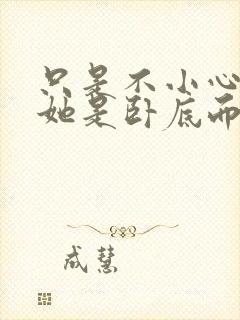 只是不小心
她是卧底而
成慧